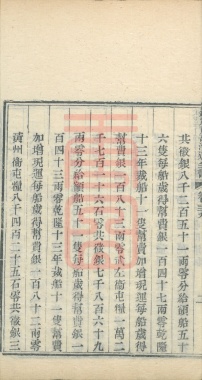 共徵銀八千二百五十一兩零分給頭船五十
六隻每船歲得幫費銀一百四十七兩零乾隆
十三年裁船十一隻幫費加增現運每船歲得
幫費銀一百八十三兩零武左衛屯糧一萬二
千七百一十六石零共徵銀七千八百六十九
兩零分給頭船五十一隻每船歲得幫費銀一
百四十三兩零乾隆十三年裁船十一隻幫費
加增現運每船歲得幫費銀一百八十二兩零
黃州衛屯糧八千四百二十五石零共徵銀三